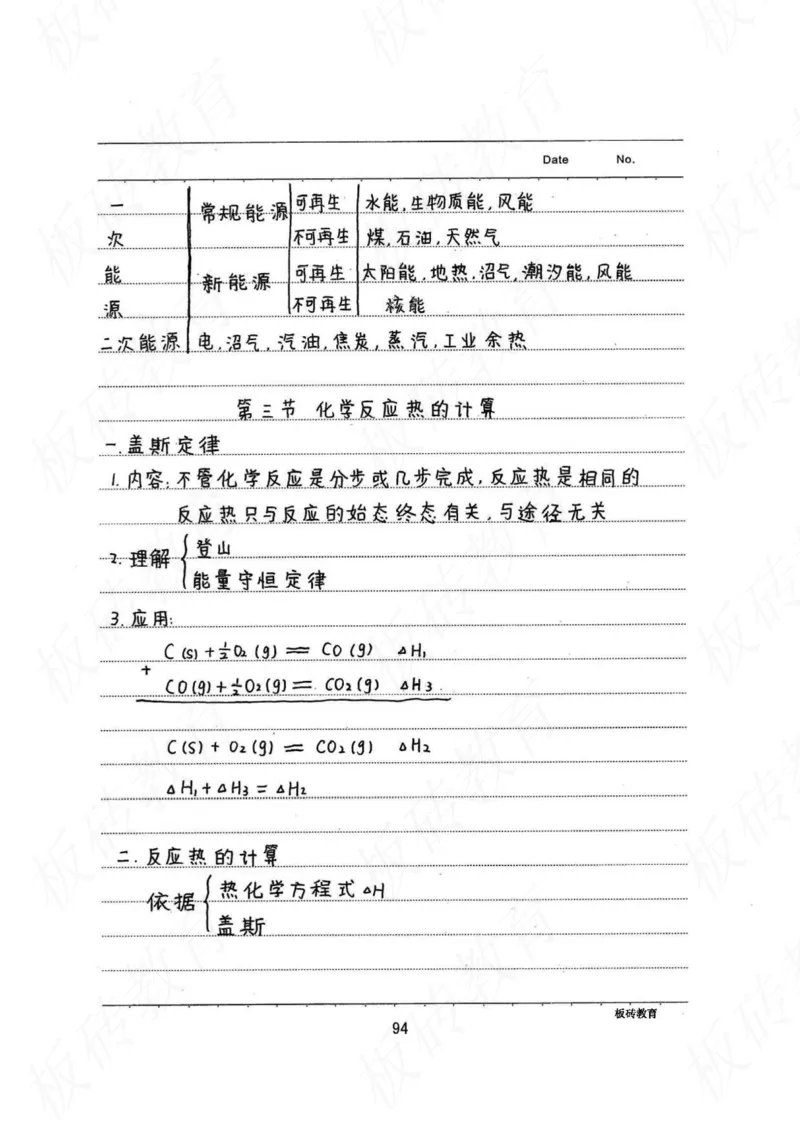 Date No.
一次能源 常规能源 可再生 水能,生物质能,风能
不可再生 煤,石油,天然气
新能源 可再生 太阳能,地热,沼气,潮汐能,风能
不可再生 核能
二次能源 电,沼气,汽油,焦炭,蒸汽,工业余热
第三节 化学反应热的计算
一.盖斯定律
1.内容:不管化学反应是分步或几步完成,反应热是相同的
反应热只与反应的始态终态有关,与途径无关
2.理解 { 登山
能量守恒定律
3.应用:
C(s)+½O₂(g)═CO(g) △H₁
+
CO(g)+½O₂(g)═CO₂(g) △H₃
C(S)+O₂(g)═CO₂(g) △H₂
△H₁+△H₃=△H₂
二.反应热的计算
依据 { 热化学方程式△H
盖斯
板砖教育
94